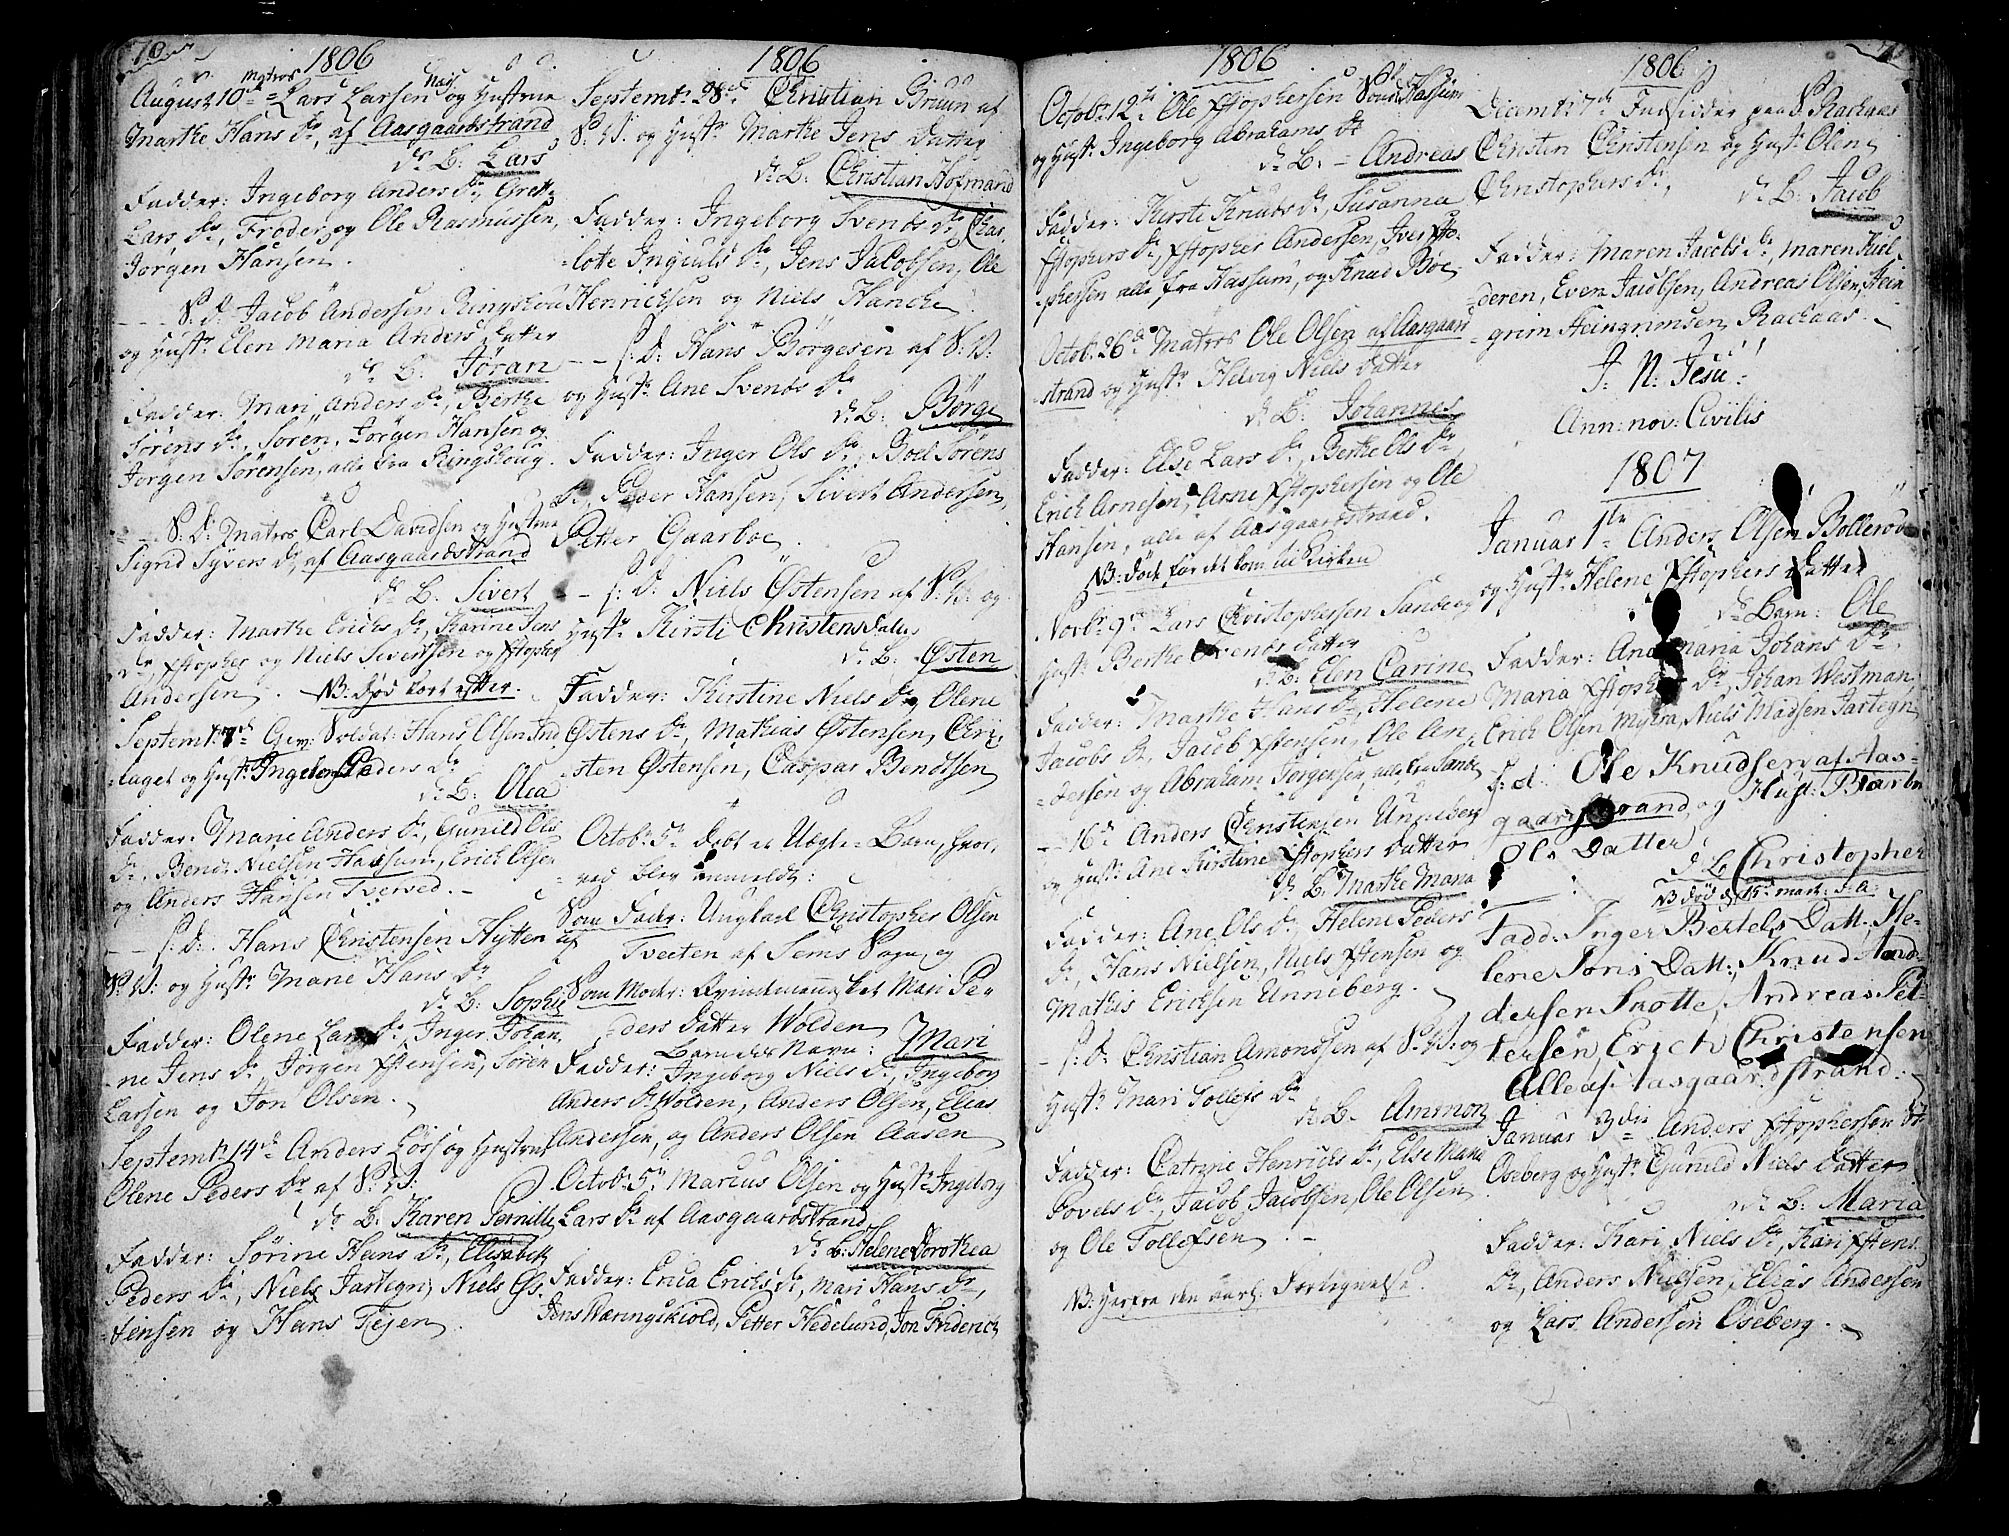 70
1806
August 10de Matros Lars Larsen Næs og Hustrue
Marthe Hans Dr, af Aasgaardstrand
ds B: Lars
Fadder: Ingeborg Anders Dr, Grethe
Lars Dr, Froder og Ole Rasmussen,
Jørgen Hansen.
S: D: Jacob Andersen Ringshou
og Hustr Elen Maria Anders Datter
ds B: Jøran
Fadder: Mari Anders Dr, Berthe
Sørens Dr, Søren, Jørgen Hansen og
Jørgen Sørensen, alle fra Ringshoug.
S: D: Matros Carl Davidsen og Hustrue
Sigrid Syvers Dr, af Aasgaardstrand
ds B. Sivert
Fadder: Marthe Erichs Dr, Karine Jens
Dr, Xstopher og Niels Sivertsen og Xstopher
Andersen. NB: død kort efter.
Septembr 7de Gev: Soldat: Hans Olsen Ind
laget og Hustr Ingeborg Peders Dr
ds B: Olea
Fadder: Marie Anders Dr, Gunild Ols
Dr, Bendt Nielsen Hassum, Erich Olsen
og Anders Hansen Tverved.
S: D: Hans Christensen Hytten af
S: V: og Hustr Marie Hans Dr
ds B: Sophie
Fadder: Olene Lars Dr, Inger Johan,
ne Jens Dr Jørgen Xstensen, Søren
Larsen og Jon Olsen.
Septembr 14de Anders Løss og Hustrue
Olene Peders Dr af S: V:
ds B. Karen Pernille
Fadder: Sørine Hans Dr, Elisabeth
Peders Dr, Niels Jartegn, Niels Chri
stensen og Hans Tejen.
1806
Septembr 28de Christian Bruun af
S: V: og Hustr Marthe Jens Datter
ds B: Christian Hofmand
Fadder: Ingeborg Svends Dr, Char,
lote Dr, Jens Jacobsen, Ole
Henrichsen og Niels Hancke.
S: D: Hans Børgesen af S: V:
og Hustr Ane Svends Dr
ds B: Børge
Fadder: Inger Ols Dr, Boel Sørens
Dr, Peder Hansen, Sivert Andersen,
Petter Gaarboe.
S: D: Niels Østensen af S: V: og
Hustr Kirsti Christens Datter
ds B: Østen
Fadder: Kirstine Niels Dr, Olene
Østens Dr, Mathias Østensen, Chri,
sten Østensen, Caspar Bendtsen
Octobr 5te Døbt et Uægte Barn, hvor,
ved blev anmeldt:
Som Fader: Ungkarl Christopher Olsen
Tveeten af Sems Sogn, og
Som Moder: Qvindemennesket Mari Pe,
ders Datter Wolden
Barnets Navn: Mari
Fadder: Ingeborg Niels Dr, Ingeborg
Anders Dr Wolden, Anders Olsen, Elias
Andersen, og Anders Olsen Aasen
Octobr 5te Marius Olsen og Hustr Ingeborg
Lars Dr af Aasgaardstrand
ds B: Helene Dorothea
Fadder: Erica Erichs Dr, Mari Hans Dr,
Jens Wæringskiold, Petter Hedelund, Jon Friderich
1806
Octobr 12te Ole Xstophersen Søndre Hassum
og Hustr Ingeborg Abrahams Dr
ds B: Andreas
Fadder: Kirste Knuds Dr, Susanna
Xstophers Dr, Xstopher Andersen, Iver Xsto,
phersen alle fra Hassum, og Knud Bøe
Octobr 26de Matros Ole Olsen af Aasgaard
strand og Hustr Helvig Niels Datter
ds B: Johannes
Fadder: Else Lars Dr, Berthe Ols Dr,
Erich Arnesen, Arne Xstophersen og Ole
Hansen, alle af Aasgaardstrand.
NB: døde før det kom til Kirken
Novbr 9de Lars Christophersen Sande og
Hustr Berthe Svends Datter
ds B: Elen Carine
Fadder: Marthe Hans Dr, Helene
Jacobs Dr, Jacob Xstensen, Ole An,
dersen og Abraham Jørgensen, alle fra Sande
16de Anders Christensen Unneberg
og Hustr Ane Kirstine Xstophers Datter
ds B: Marthe Maria
Fadder: Ane Ols Dr, Helene Peders
Dr, Hans Nielsen, Niels Xstensen og
Mathis Ericksen Unneberg.
S: D: Christian Amondsen af S: V: og
Hustr Mari Tollefs Dr
ds B. Ammon
Fadder: Catrine Henrichs Dr, Else Maria
Povels Dr, Jacob Jacobsen, Ole Olsen
og Ole Tollefsen.
NB: herfra den aarl: Fortegnelse.
1806
Decembr 7de Indsidder paa S. Rachaas
Christen Christensen og Hustr Olene
Christophers Dr,
ds B: Jacob
Fadder: Maren Jacobs Dr, Maren Kiel
deren, Even Jacobsen, Andreas Olsen, Stein
grim Steingrimsen Rachaas.
J: N: Jesu:
Ann: nov: Civilis
1807
Januar 1te Anders Olsen Bollerød
og Hustr Helene Xstophers Datter
ds Barn: Ole
Fadder: Ane Maria Johans Dr,
Maria Xstophers Dr, Johan Westman,
Erich Olsen Myhra, Niels Madsen Jartegn
S: d: Ole Knudsen af Aas-
gaardstrand og Hust: Barbr
Ols Datter
d B. Christopher
NB død d: 15de mart: s: a:
Fadd: Inger Bertels Datt, He-
lene Jons Datt:, Knud And-
dersen Snotte, Andreas Pet-
tersen, Erich Christensen
Alle af Aasgaardstrand.
Januar 3die Anders Xstophersen
Oseberg og Hustr Gunild Niels Datter
ds B: Maria
Fadder: Kari Niels Dr, Kari Xstens
Dr, Anders Nielsen, Elias Andersen
og Lars Andersen Oseberg.